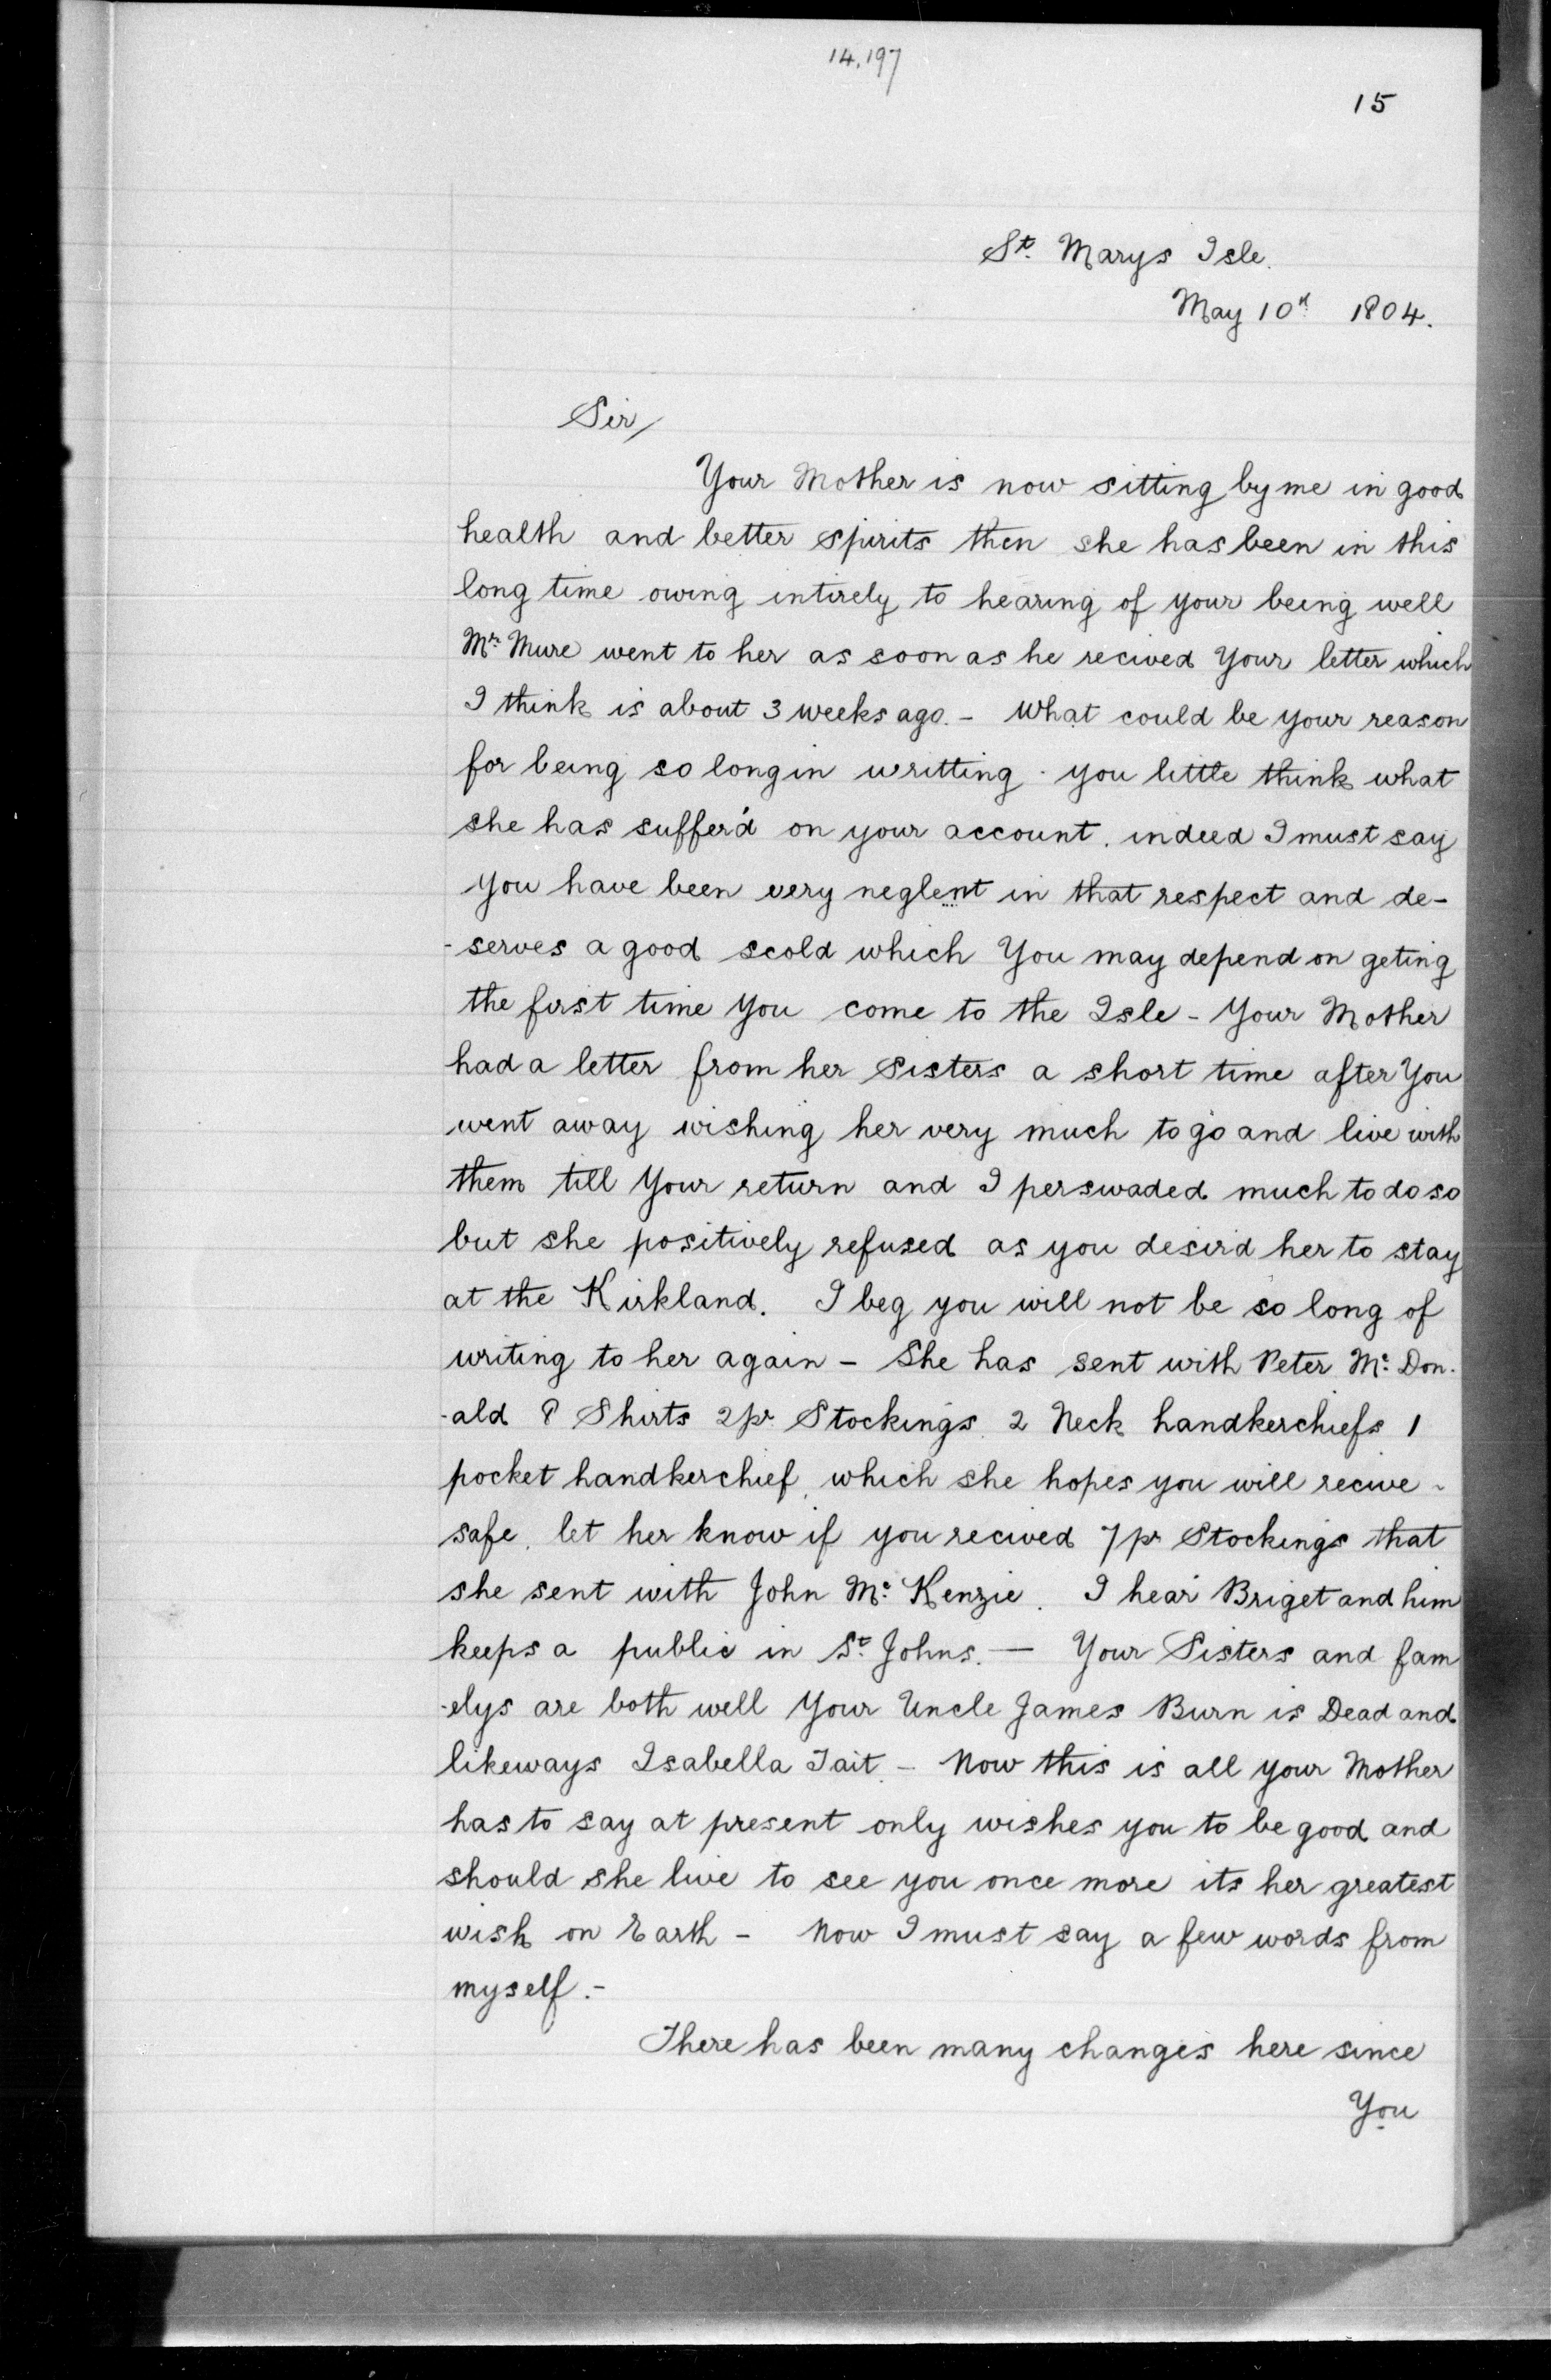 14,197
15
St. Marys Isle.
May 10th 1804.
Sir/
Your Mother is now sitting by me in good
health and better spirits then she has been in this
long time owing intirely to hearing of your being well
Mr. Mure went to her as soon as he recived Your letter which
I think is about 3 weeks ago. - What could be your reason
for being so long in writting. you little think what
she has suffer'd on your account. indeed I must say
you have been very neglent in that respect and de-
-serves a good scold which You may depend on geting
the first time You come to the Isle - Your Mother
had a letter from her Sisters a short time after You
went away wishing her very much to go and live with
them till Your return and I perswaded much to do so
but she positively refused as you desir'd her to stay
at the Kirkland. I beg you will not be so long of
writing to her again - She has sent with Peter Mc. Don-
-ald 8 Shirts 2 pr Stockings. 2 Neck handkerchiefs 1
pocket handkerchief, which she hopes you will recive -
safe. let her know if you recived 7 pr Stockings that
she sent with John Mc. Kenzie. I hear Briget and him
keeps a public in St. Johns. — Your Sisters and fam
-elys are both well Your Uncle James Burn is Dead and
likeways Isabella Tait. - Now this is all your Mother
has to say at present only wishes you to be good and
should she live to see you once more its her greatest
wish on Earth - Now I must say a few words from
myself. -
There has been many changes here since
You